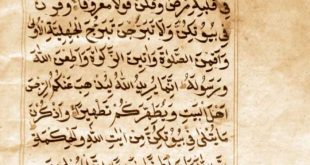 فِي قَلْبِهِ مَرَضٌ وَقُلْنَ قَوْلًا مَعْرُوفًا وَقَرْنَ
فِي بُيُوتِكُنَّ وَلَا تَبَرَّجْنَ تَبَرُّجَ الْجٰهِلِيَّةِ الْأُولَى
وَأَقِمْنَ الصَّلٰوةَ وَآتِينَ الزَّكٰوةَ وَأَطِعْنَ اللَّهَ
وَرَسُولَهُ إِنَّمَا يُرِيدُ اللَّهُ لِيُذْهِبَ عَنكُمُ الرِّجْسَ
أَهْلَ الْبَيْتِ وَيُطَهِّرَكُمْ تَطْهِيرًا وَاذْكُرْنَ
مَا يُتْلَى فِي بُيُوتِكُنَّ مِنْ اٰيٰتِ اللَّهِ وَالْحِكْمَةِ